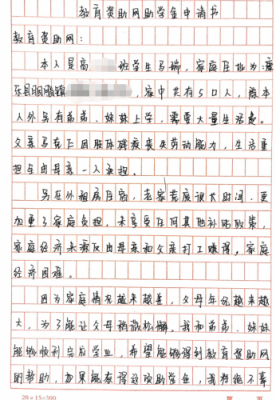 教育资助网助学金申请书
教育资助网：
本人是高 班学生马瑞，家庭住址为：
县 镇 ，家中共有5口人，除本
人外另有弟弟、妹妹上学，需要大量生活费。
父亲另有下因肢体残疾丧失劳动能力，生活重
担全由母亲一人承担。
另在外租房居住，老家荒废误农时间，更
加重了家庭负担，未享受任何其他补贴政策，
家庭经济来源仅由母亲和父亲打工赚得，家庭
经济困难。
因为家庭情况越来越差，父母年纪越来越
大，为了能让父母稍微松懈，我和弟弟、妹妹
能够顺利完成学业，希望能够得到教育资助网
的帮助，如果能获得这项助学金，我将绝不辜
20×15=300 第 页